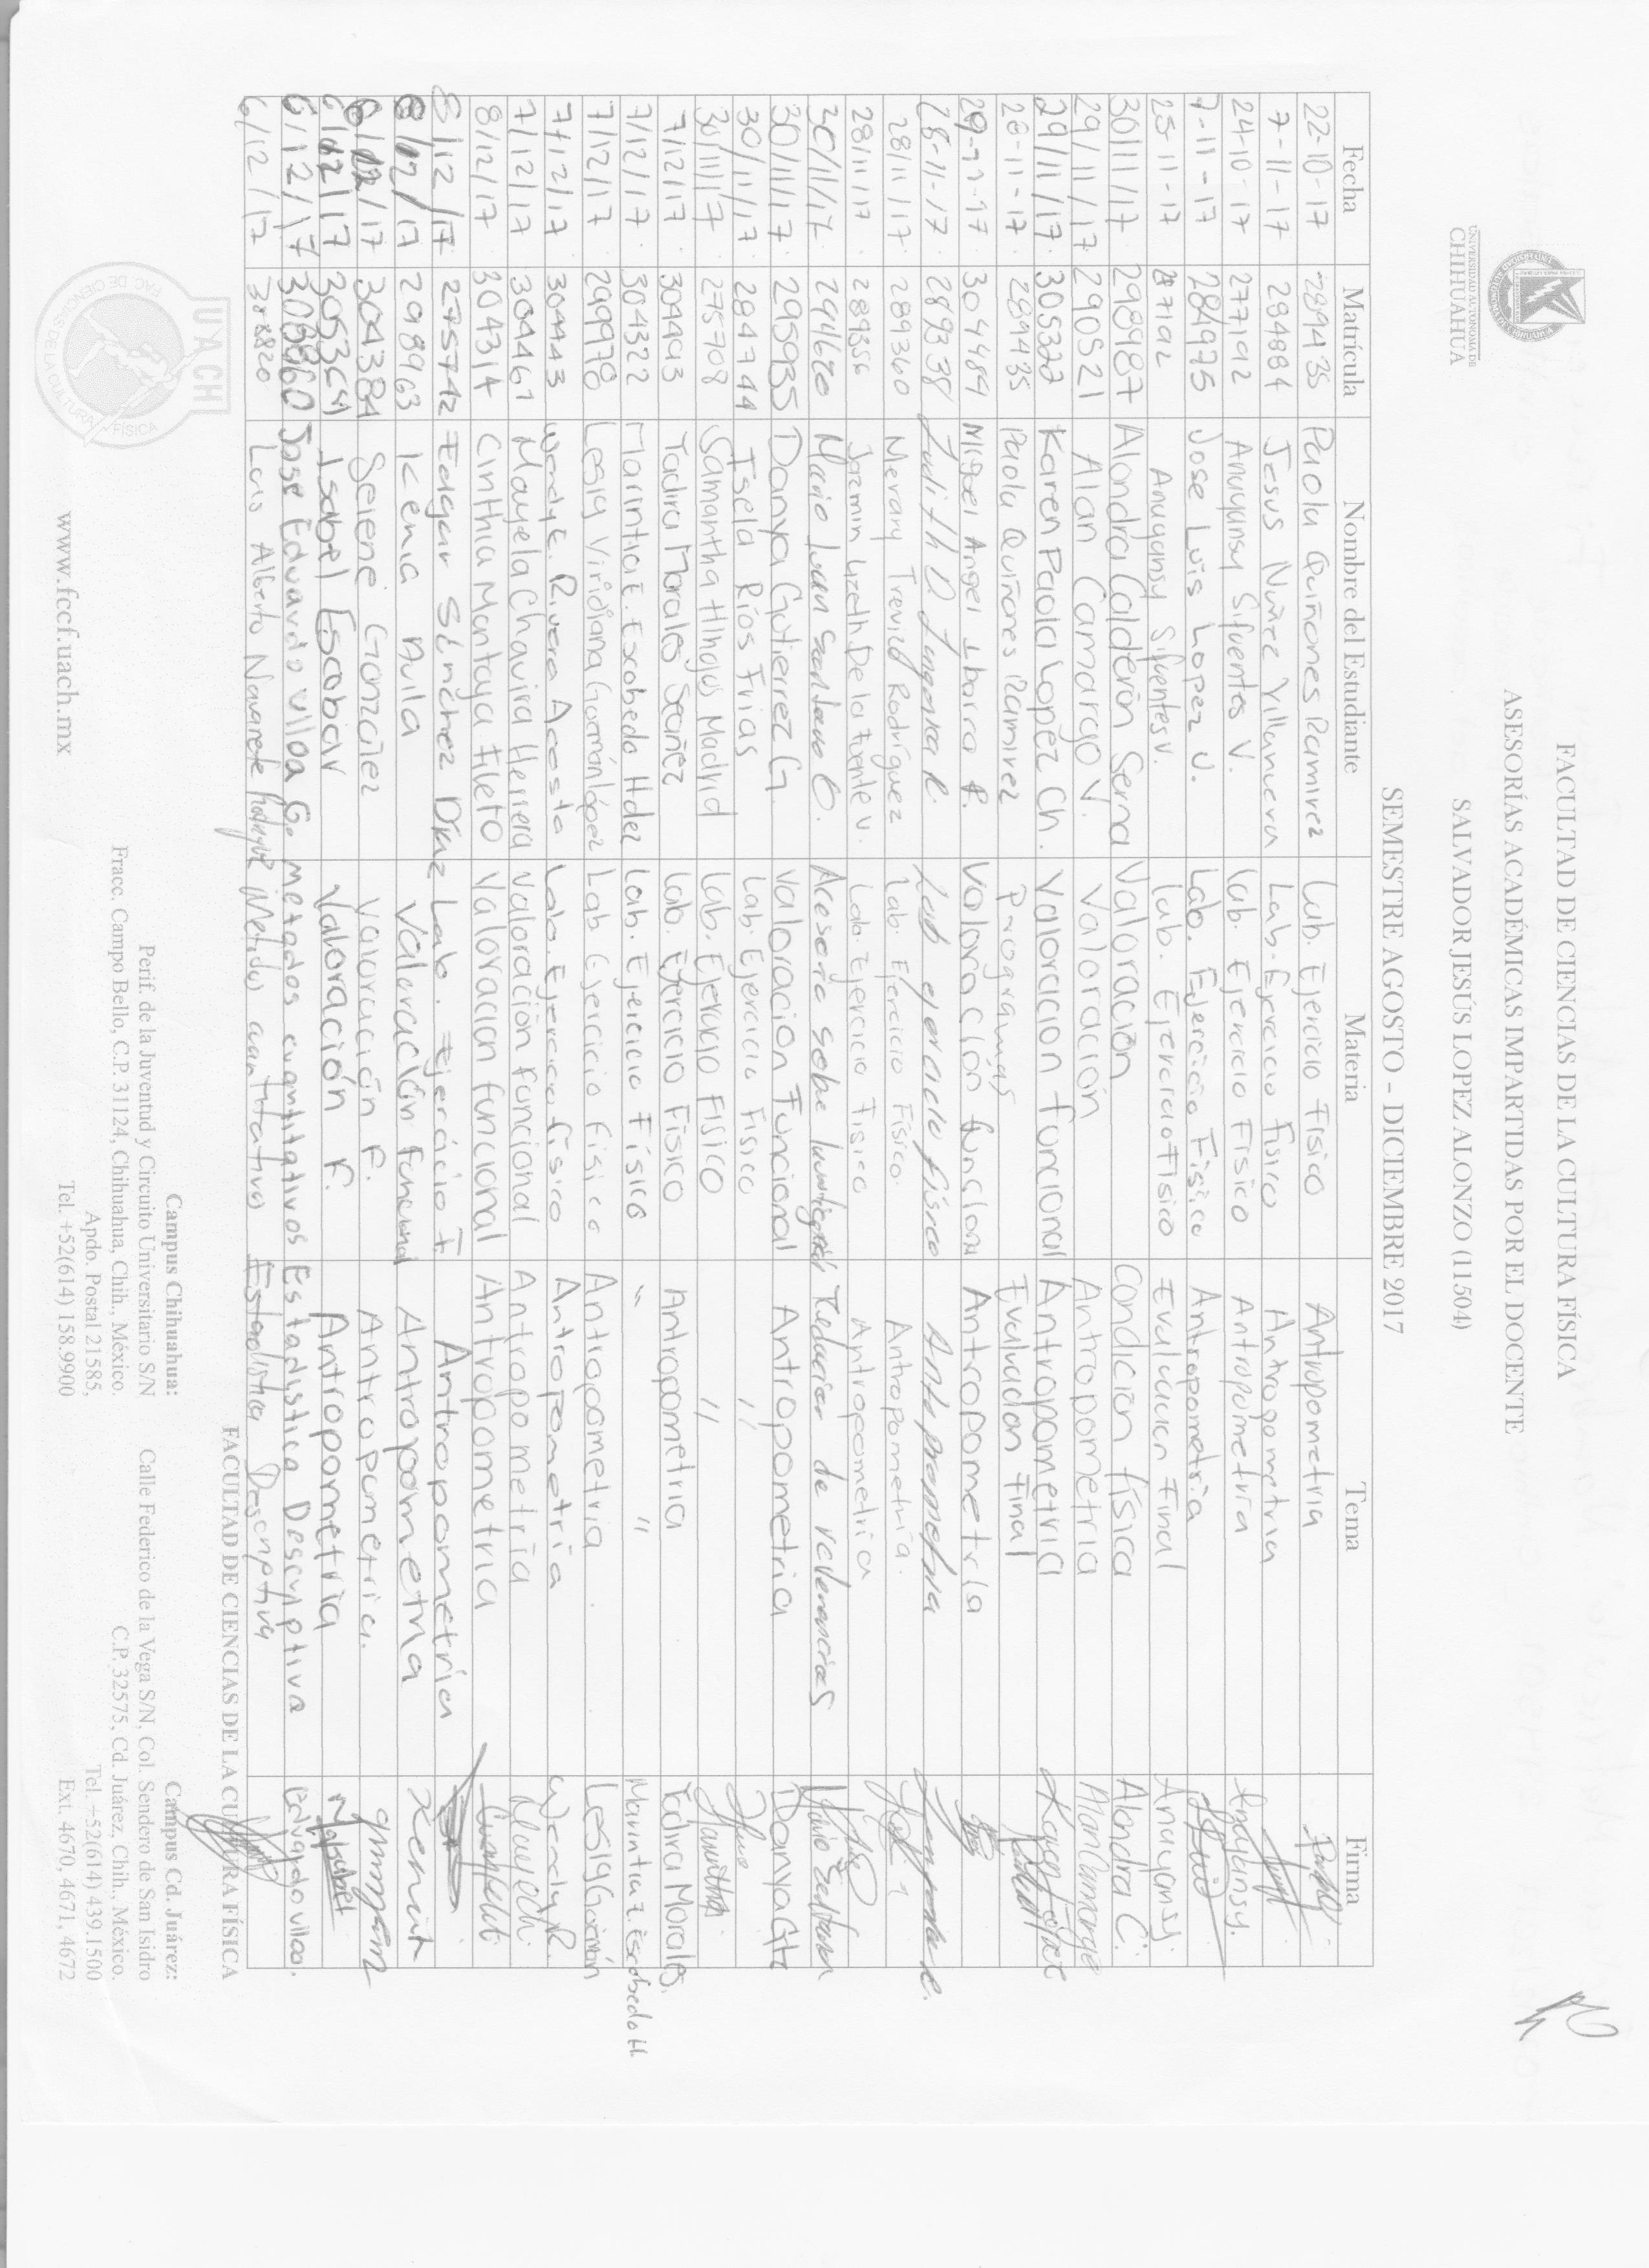 UNIVERSIDAD AUTÓNOMA DE
CHIHUAHUA
FACULTAD DE CIENCIAS DE LA CULTURA FÍSICA
ASESORÍAS ACADÉMICAS IMPARTIDAS POR EL DOCENTE
SALVADOR JESÚS LOPEZ ALONZO (11504)
SEMESTRE AGOSTO - DICIEMBRE 2017
Fecha Matrícula Nombre del Estudiante Materia Tema Firma
22-10-17 289435 Paola Quiñones Ramirez Lab. Ejercicio Físico Antropometria
7-11-17 284884 Jesus Nuñez Villanueva Lab. Ejercicio Fisico Antropometria
24-10-17 277192 Anayansy Sifuentes V. Lab. Ejercicio Físico Antropometría Anayansy.
7-11-17 284975 Jose Luis Lopez V. Lab. Ejercicio Físico Antropometría
25-11-17 Anayansy Sifuentes V. Lab. Ejercicio Fisico Evaluacion Final Anayansy
30/11/17 298987 Alondra Calderón Serna Valoración Condicion física Alondra C.
29/11/17 290521 Alan Camargo V. Valoración Antropometria Alan Camargo
29/11/17 305322 Karen Paola Lopez Ch. Valoracion funcional Antropometrica
28-11-17 289435 Paola Quiñones Ramirez Programas Evaluacion Final
29-11-17 304484 Miguel Angel Ibarra Valoración funcional Antropometría
28-11-17 289338 Judith Lab ejercicio físico Antropometria
28/11/17 289360 Merary Trevizo Rodríguez Lab. Ejercicio Físico. Antropometría.
28/11/17 289356 Jazmin Lizeth De la Fuente V. Lab. Ejercicio Fisico Antropometria
30/11/17 Mario Ivan Asesoria sobre Investigación Redaccion de referencias
30/11/17 295935 Danya Gutierrez G. Valoracion Funcional Antropometria Danya Gtz
30/11/17 284744 Isela Ríos Frias Lab. Ejercicio Fisico "
30/11/17 275708 Samantha Hinojos Madrid Lab. Ejercicio Físico "
7/12/17 304493 Yadira Morales Seañez Lab. Ejercicio Físico Antropometria Yadira Morales.
7/12/17 304322 Marintia E. Escobedo Hdez Lab. Ejercicio Físico " " Marintia E. Escobedo H.
7/12/17 299978 Lesly Viridiana Guzmán López Lab Ejercicio Fisico Antropometria Lesly Guzmán
7/12/17 304443 Wendy E. Rivera Acosta Lab. Ejercicio físico Antropometría Wendy R.
7/12/17 304461 Mayela Chavira Herrera Valoración funcional Antropometría
8/12/17 304314 Cinthia Montoya Fileto Valoracion funcional Antropometria
8/12/17 275742 Edgar Sánchez Díaz Lab. Ejercicio F. Antropometria
8/12/17 298963 Kenia Avila Valoración funcional Antropometria Kenia
6/12/17 304384 Selene González Valoración F. Antropometria.
6/12/17 305364 Isabel Escobar Valoración F. Antropometria
6/12/17 Jose Eduardo Ulloa G. Metodos cuantitativos Estadística Descriptiva Eduardo Ulloa.
6/12/17 Luis Alberto Navarrete Metodos cuantitativos Estadística Descriptiva
FACULTAD DE CIENCIAS DE LA CULTURA FÍSICA
UACH
FAC. DE CIENCIAS DE LA CULTURA FÍSICA
www.fccf.uach.mx
Campus Chihuahua:
Perif. de la Juventud y Circuito Universitario S/N
Fracc. Campo Bello, C.P. 31124, Chihuahua, Chih., México.
Apdo. Postal 21585,
Tel. +52(614) 158.9900
Campus Cd. Juárez:
Calle Federico de la Vega S/N, Col. Sendero de San Isidro
C.P. 32575, Cd. Juárez, Chih., México.
Tel. +52(614) 439.1500
Ext. 4670, 4671, 4672